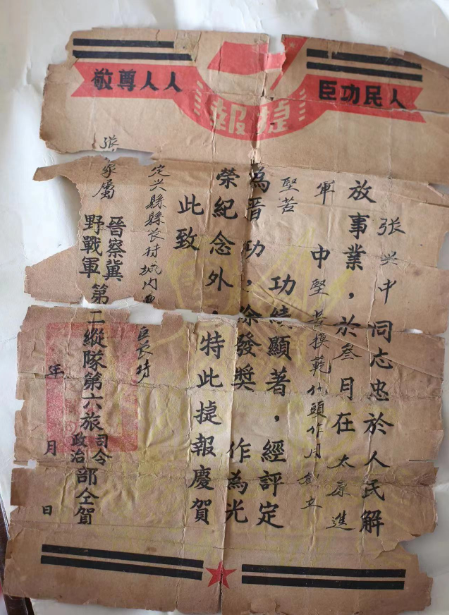 人民功臣
人人尊敬
捷報
張興中同志忠於人民解
放事業，於叁月在太原進
軍中堅苦模範代頭作用
堅苦功績顯著，經評定
為晉功，除發獎作為光
榮紀念外，特此捷報慶賀
此致
定興縣縣長村城內
區長村
張家屬
晉察冀
野戰軍第二縱隊第六旅司令
政治部仝賀
年月日